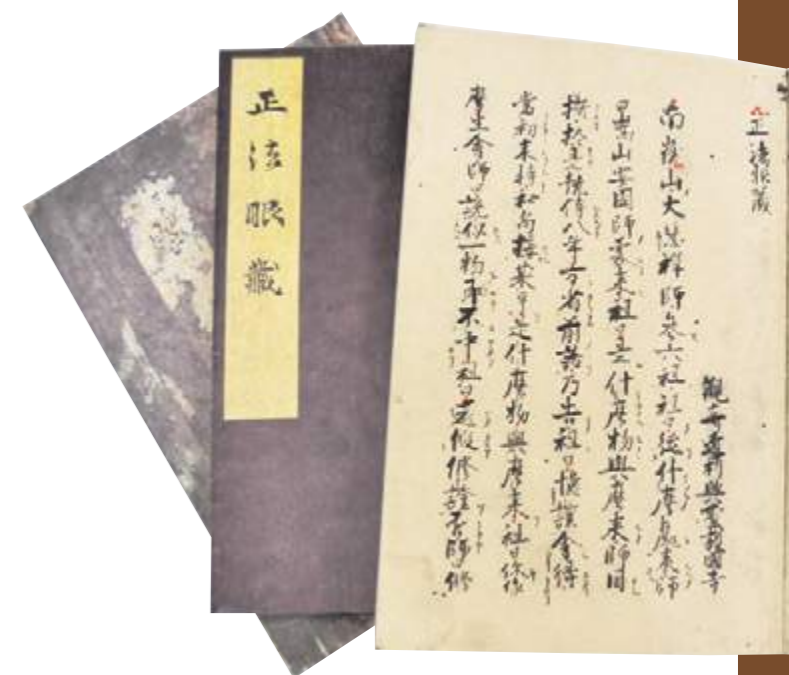 正法眼蔵
觀音導利興聖護國寺
南嶽山大慧禪師参六祖祖曰從什麼處来師
曰嵩山安国師處来祖曰什麼物與麼来師因
措於是執侍八年方省前話乃告祖曰懷讓會得
當初来時和尚接某甲是什麼物與麼来祖曰你作
麼生會師曰説似一物即不中祖曰還假修證否師修
正法眼藏